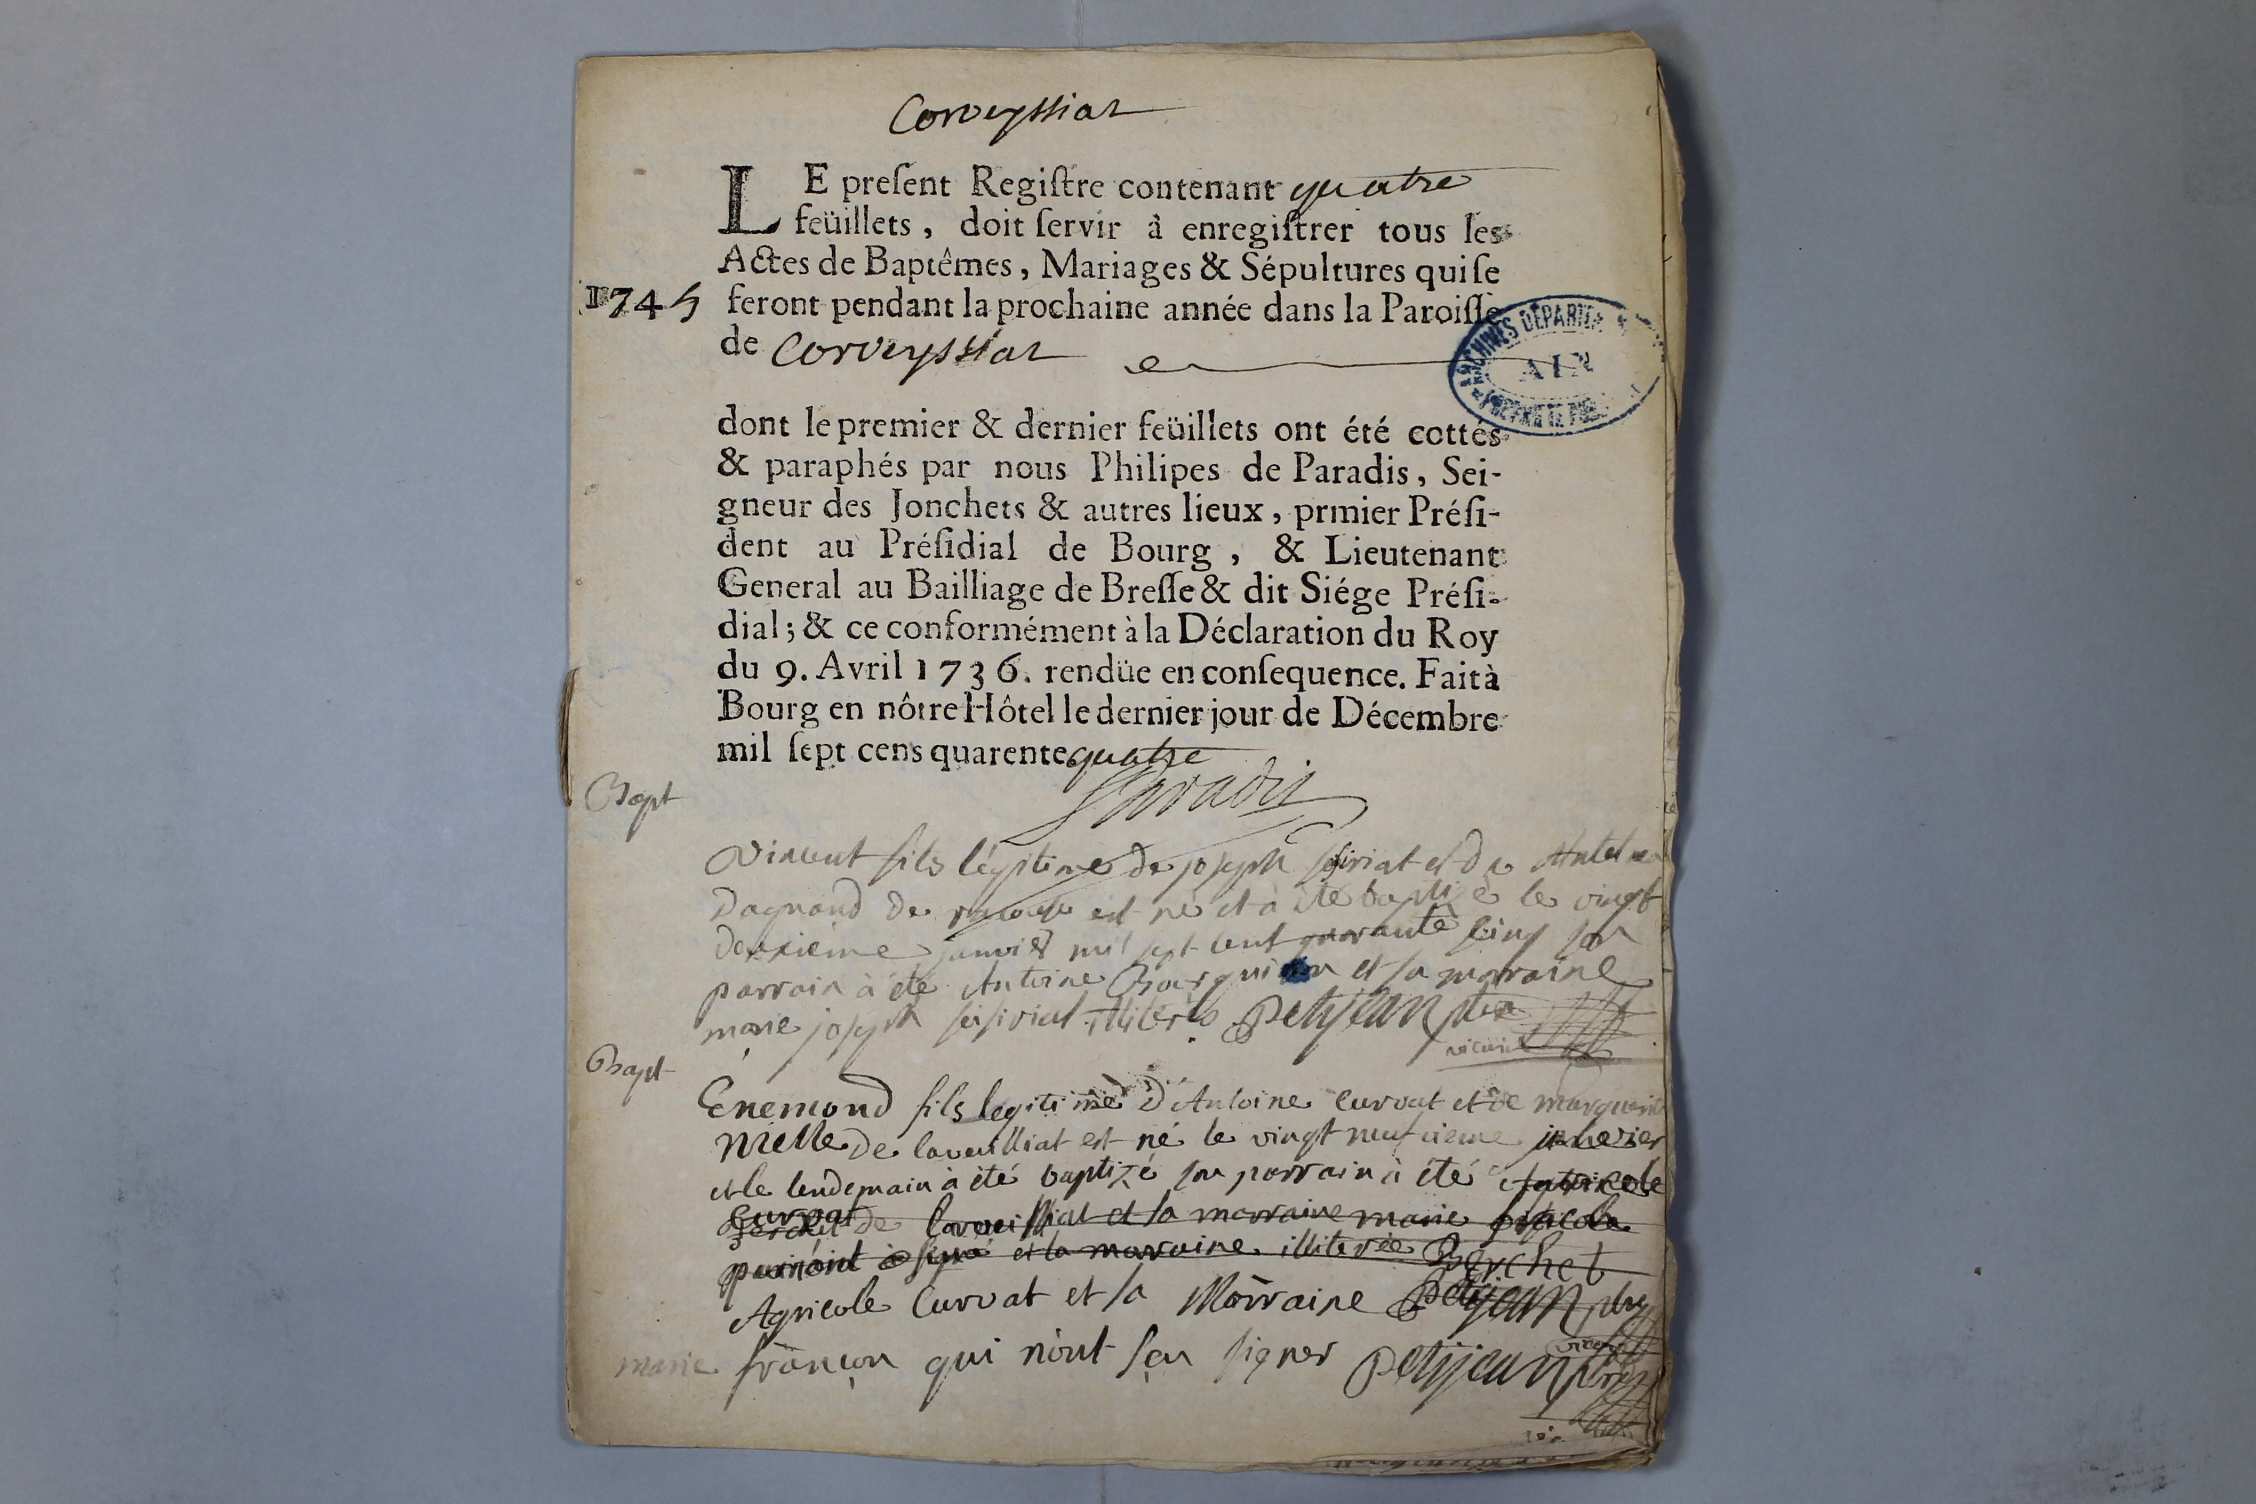 Corveyssiat
LE preſent Regiſtre contenant quatre
feüillets, doit ſervir à enregiſtrer tous les
Actes de Baptêmes, Mariages & Sépultures qui ſe
1745 feront pendant la prochaine année dans la Paroiſſe
de Corveyssiat
ARCHIVES DÉPARTEM
AIN
dont le premier & dernier feüillets ont été cottés
& paraphés par nous Philipes de Paradis, Sei-
gneur des Jonchets & autres lieux, prmier Préſi-
dent au Préſidial de Bourg, & Lieutenant
General au Bailliage de Breſſe & dit Siége Préſi-
dial; & ce conformément à la Déclaration du Roy
du 9. Avril 1736. rendüe en conſequence. Fait à
Bourg en nôtre Hôtel le dernier jour de Décembre
mil ſept cens quarente quatre
Paradis
Bapt
Vincent fils légitime de joseph et de Antel
Dagnand de est né et à été baptizé le vingt
deuxieme janvier mil sept cent quarante cinq son
parrain à été Antoine et sa marraine
marie joseph illiterés Petijean ptre
vicaire
Bapt
Enemond fils legitime d'Antoine Curvat et de marguerite
Nielle de laveilliat est né le vingt neufvieme
et le lendemain à été baptizé son parrain à été
Curvat de laveilliat et la marraine marie
à signé et la maraine illiterée Berchet
Agricole Curvat et sa Marraine Petijean ptre
vicaire
marie françon qui n'ont sçu signer Petijean ptre
vic